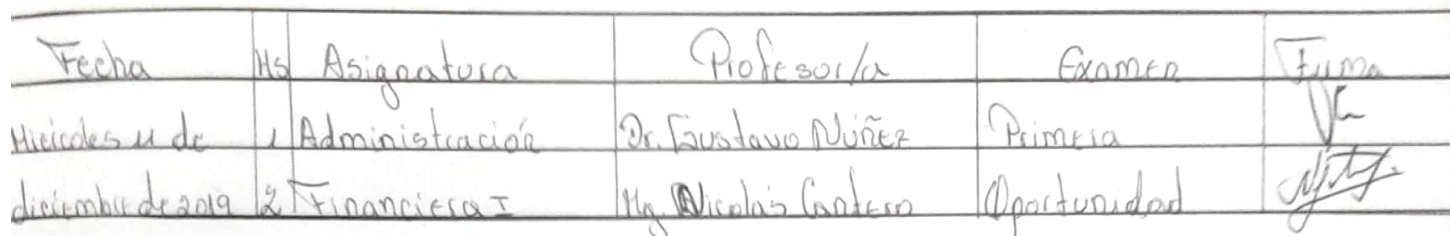 Fecha Hs Asignatura Profesor/a Examen Firma
Miércoles 11 de 1 Administración Dr. Gustavo Núñez Primera
diciembre de 2019 2 Financiera I Mg. Nicolás Cantero Oportunidad